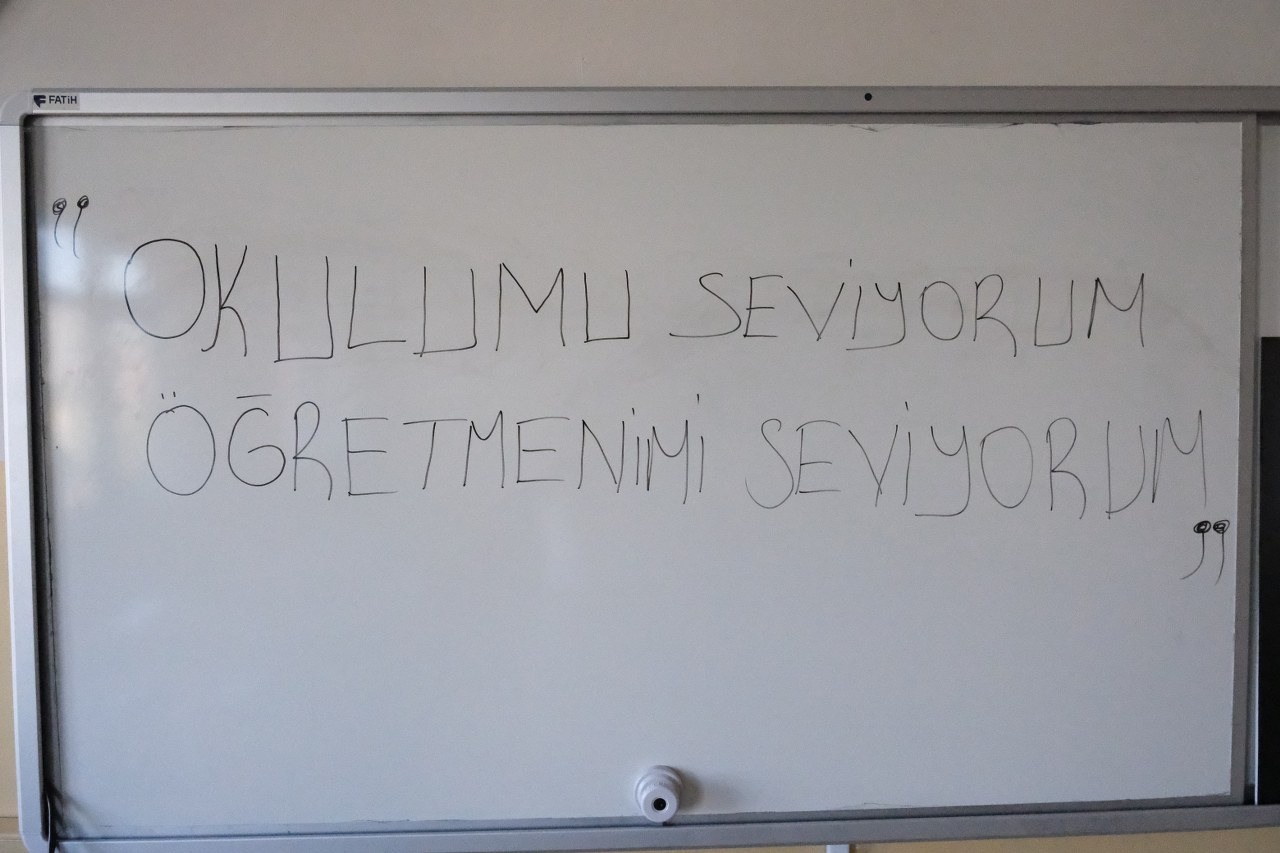 FATİH
“OKULUMU SEVİYORUM
ÖĞRETMENİMİ SEVİYORUM”